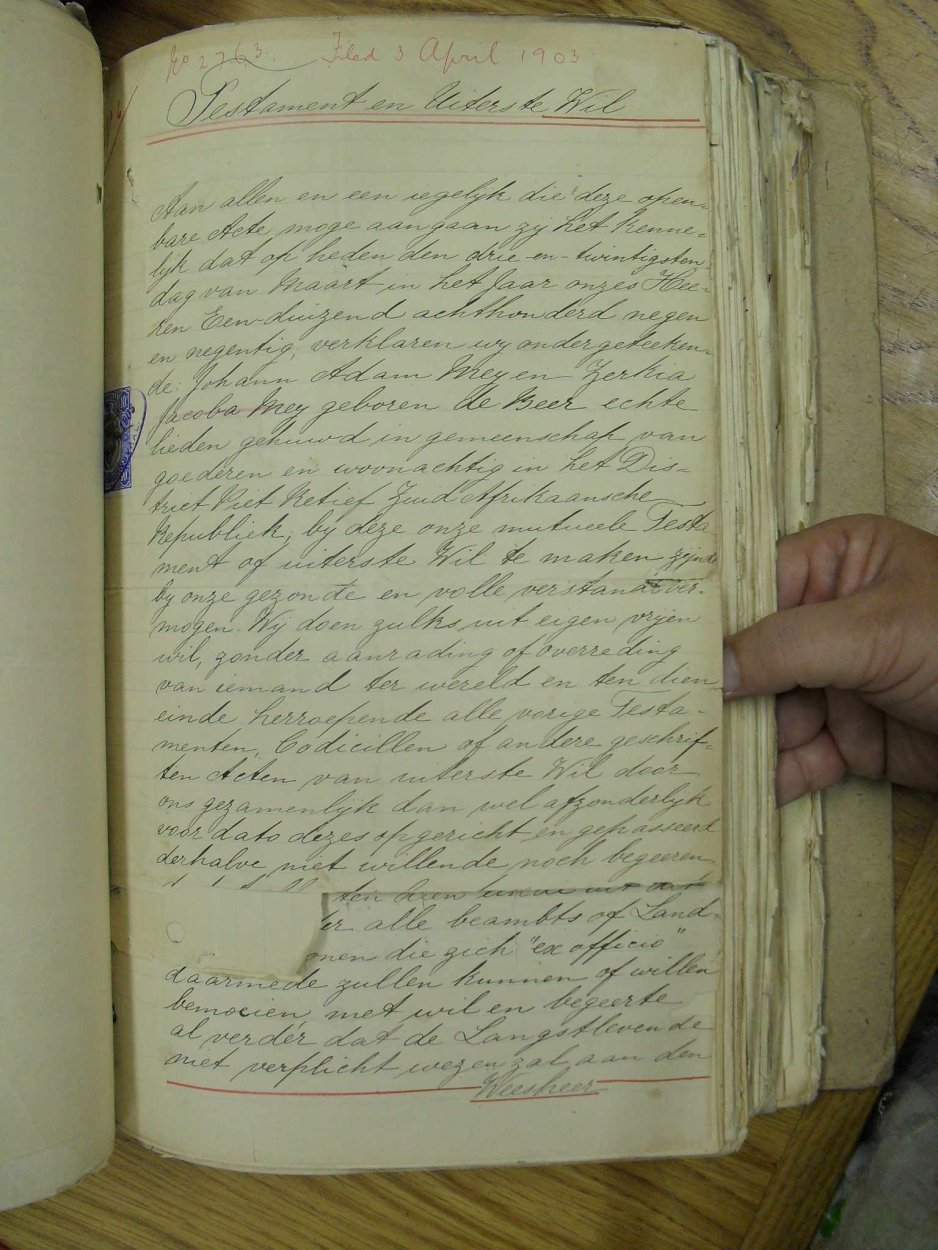 No 2763. Filed 3 April 1903
Testament en Uiterste Wil
Aan allen en een iegelijk die deze open-
bare Acte moge aangaan zij het kenne-
lijk dat op heden den drie-en-twintigsten
dag van Maart in het Jaar onzes Hee-
ren Een duizend achthonderd negen
en negentig, verklaren wy ondergeteeken-
de: Johann Adam Mey en Zerkia
Jacoba Mey geboren de Beer echte
lieden gehuwd in gemeenschap van
goederen en woonachtig in het Dis-
trict Piet Retief Zuid Afrikaansche
Republiek, by deze onze mutueele Testa
ment of uiterste Wil te maken zijnde
by onze gezonde en volle verstandver-
mogen. Wij doen zulks uit eigen vrijen
wil, zonder aanrading of overreding
van iemand ter wereld en ten dien
einde herroepende alle vorige Testa-
menten, Codicillen of andere geschrif-
ten Acten van uiterste Wil door
ons gezamenlijk dan wel afzonderlyk
voor dato dezes opgericht en gepasseerd
derhalve niet willende noch begeeren-
ten dien
er alle beambts of Land-
onen die zich "ex officio"
daarmede zullen kunnen of willen
bemoeien, met wil en begeerte
al verder dat de Langstlevende
niet verplicht wezen zal aan den
Weesheer